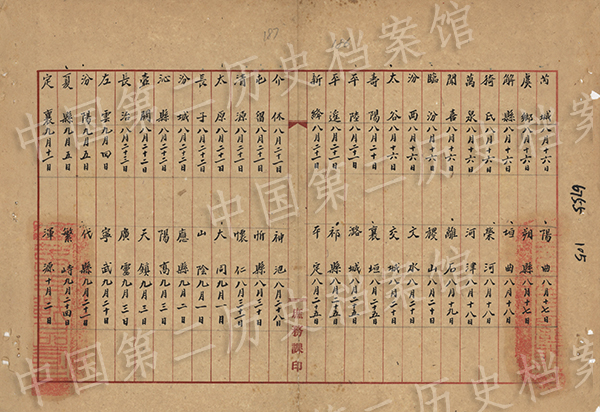 芮城八月十六日 陽曲八月十七日
虞鄉八月十六日 朔縣八月十七日
解縣八月十六日 垣曲八月十八日
猗氏八月十六日 榮河八月十八日
萬泉八月十六日 河津八月十八日
聞喜八月十六日 離石八月十九日
臨汾八月十六日 稷山八月二十日
汾西八月十六日 文水八月二十日
太谷八月十六日 交城八月二十日
壽陽八月二十日 襄垣八月二十日
平陸八月二十一日 潞城八月二十五日
平遙八月二十一日 祁縣八月二十五日
新絳八月二十一日 平定八月二十五日
務課印
介休八月二十一日 神池八月
屯留八月二十一日 忻縣八月三十日
清源八月二十二日 懷仁八月三十一日
太原八月二十二日 大同九月一日
長子八月二十二日 山陰九月二日
汾城八月二十二日 應縣九月二日
沁縣八月二十三日 陽高九月三日
壺關八月二十三日 天鎮九月三日
長治八月二十三日 廣靈九月三日
左雲九月四日 寧武九月二十日
汾陽九月五日 代縣九月二十一日
夏縣九月五日 繁峙九月二十四日
定襄九月十一日 渾源十月二日
187
105
中国第二历史档案馆
中国第二历史档案馆
中国第二历史档案馆